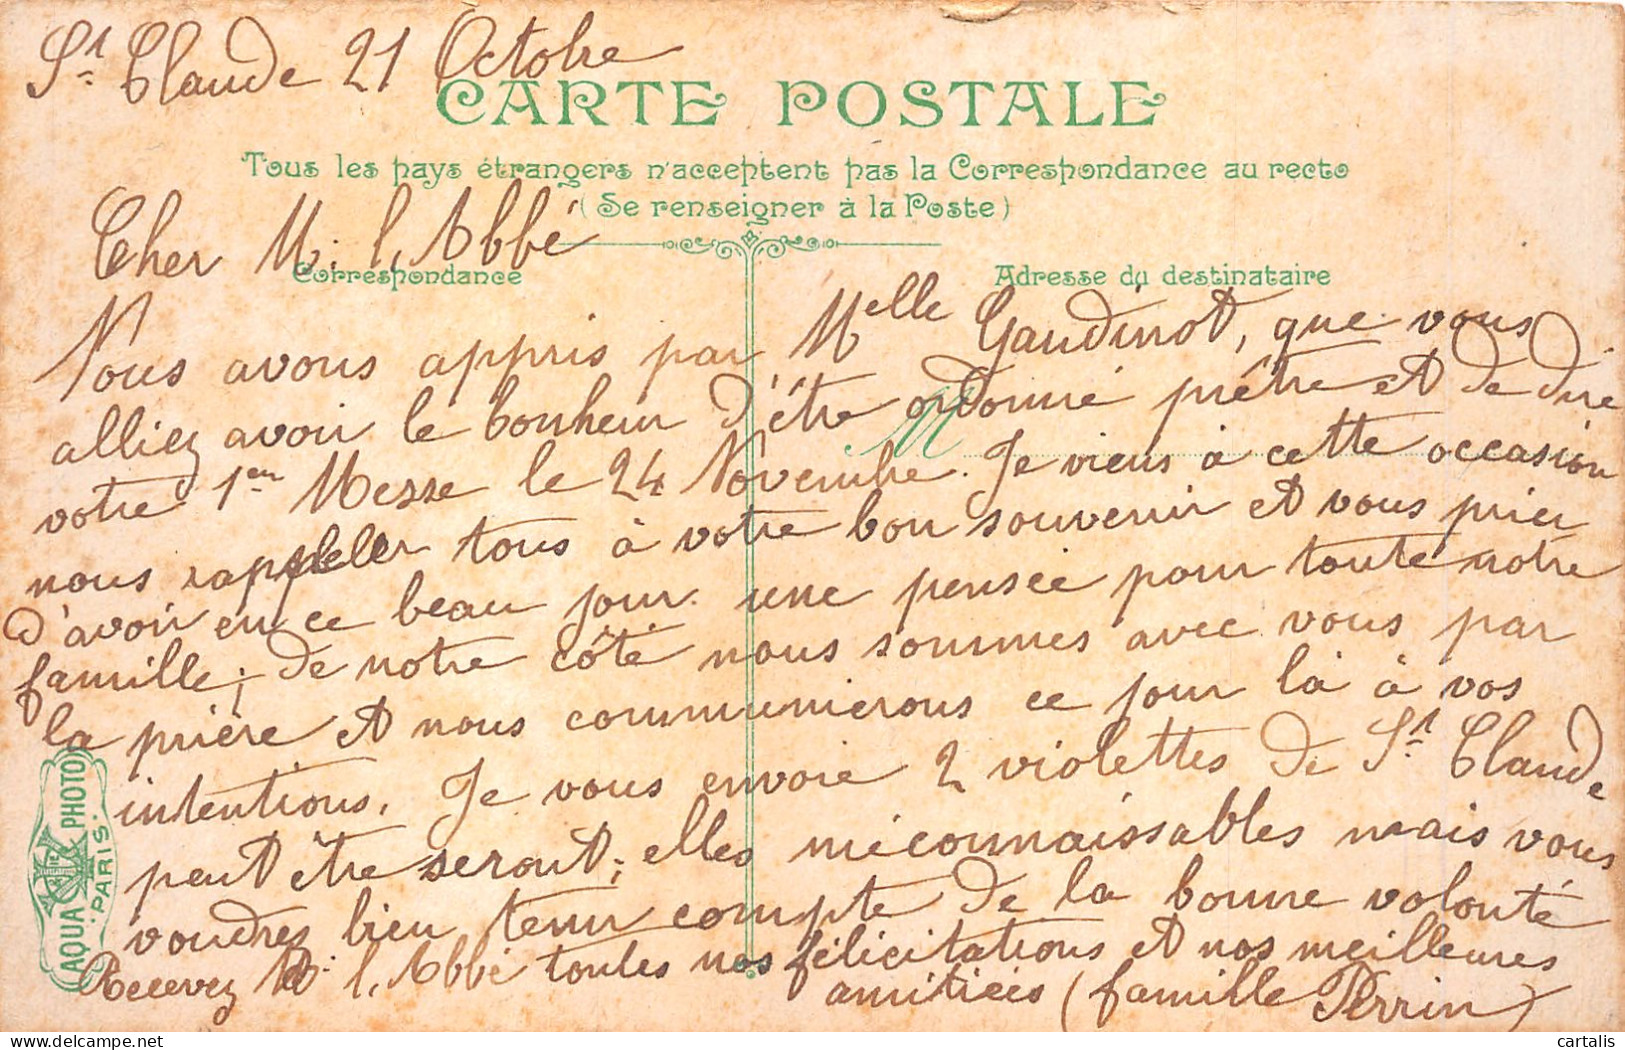 St Claude 21 Octobre
CARTE POSTALE
Tous les pays étrangers n'acceptent pas la Correspondance au recto
(Se renseigner à la Poste)
Cher M. l'Abbé
Correspondance
Adresse du destinataire
Nous avons appris par Melle Gaudinot, que vous
alliez avoir le bonheur d'être ordonné prêtre et de dire
votre 1ère Messe le 24 Novembre. Je viens à cette occasion
nous rappeler tous à votre bon souvenir et vous prier
d'avoir en ce beau jour une pensée pour toute notre
famille; de notre côté nous sommes avec vous par
la prière et nous communierons ce jour là à vos
intentions. Je vous envoie 2 violettes de St Claude
peut être seront; elles méconnaissables mais vous
voudrez bien tenir compte de la bonne volonté
Recevez M. l'Abbé toutes nos félicitations et nos meilleures
amitiées (famille Perrin)
M
AQUA PHOTO
PARIS
cartalis